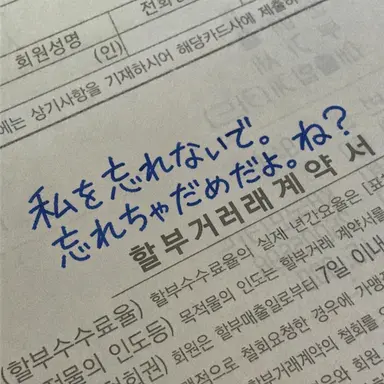 전화
회원성명
(인)
에는 상기사항을 기재하시어 해당카드사에 제출하
私を忘れないで。
忘れちゃだめだよ。ね?
할부거래계약서
(할부수수료율) 할부수수료율의 실제 년간요율은
목적물의 인도등) 목적물의 인도는 할부거래 계약서를
회권) 회원은 할부매출일로부터 7일 이내
적으로 철회요청한 경우에 가맹
할부거래계약의 철회를
회원